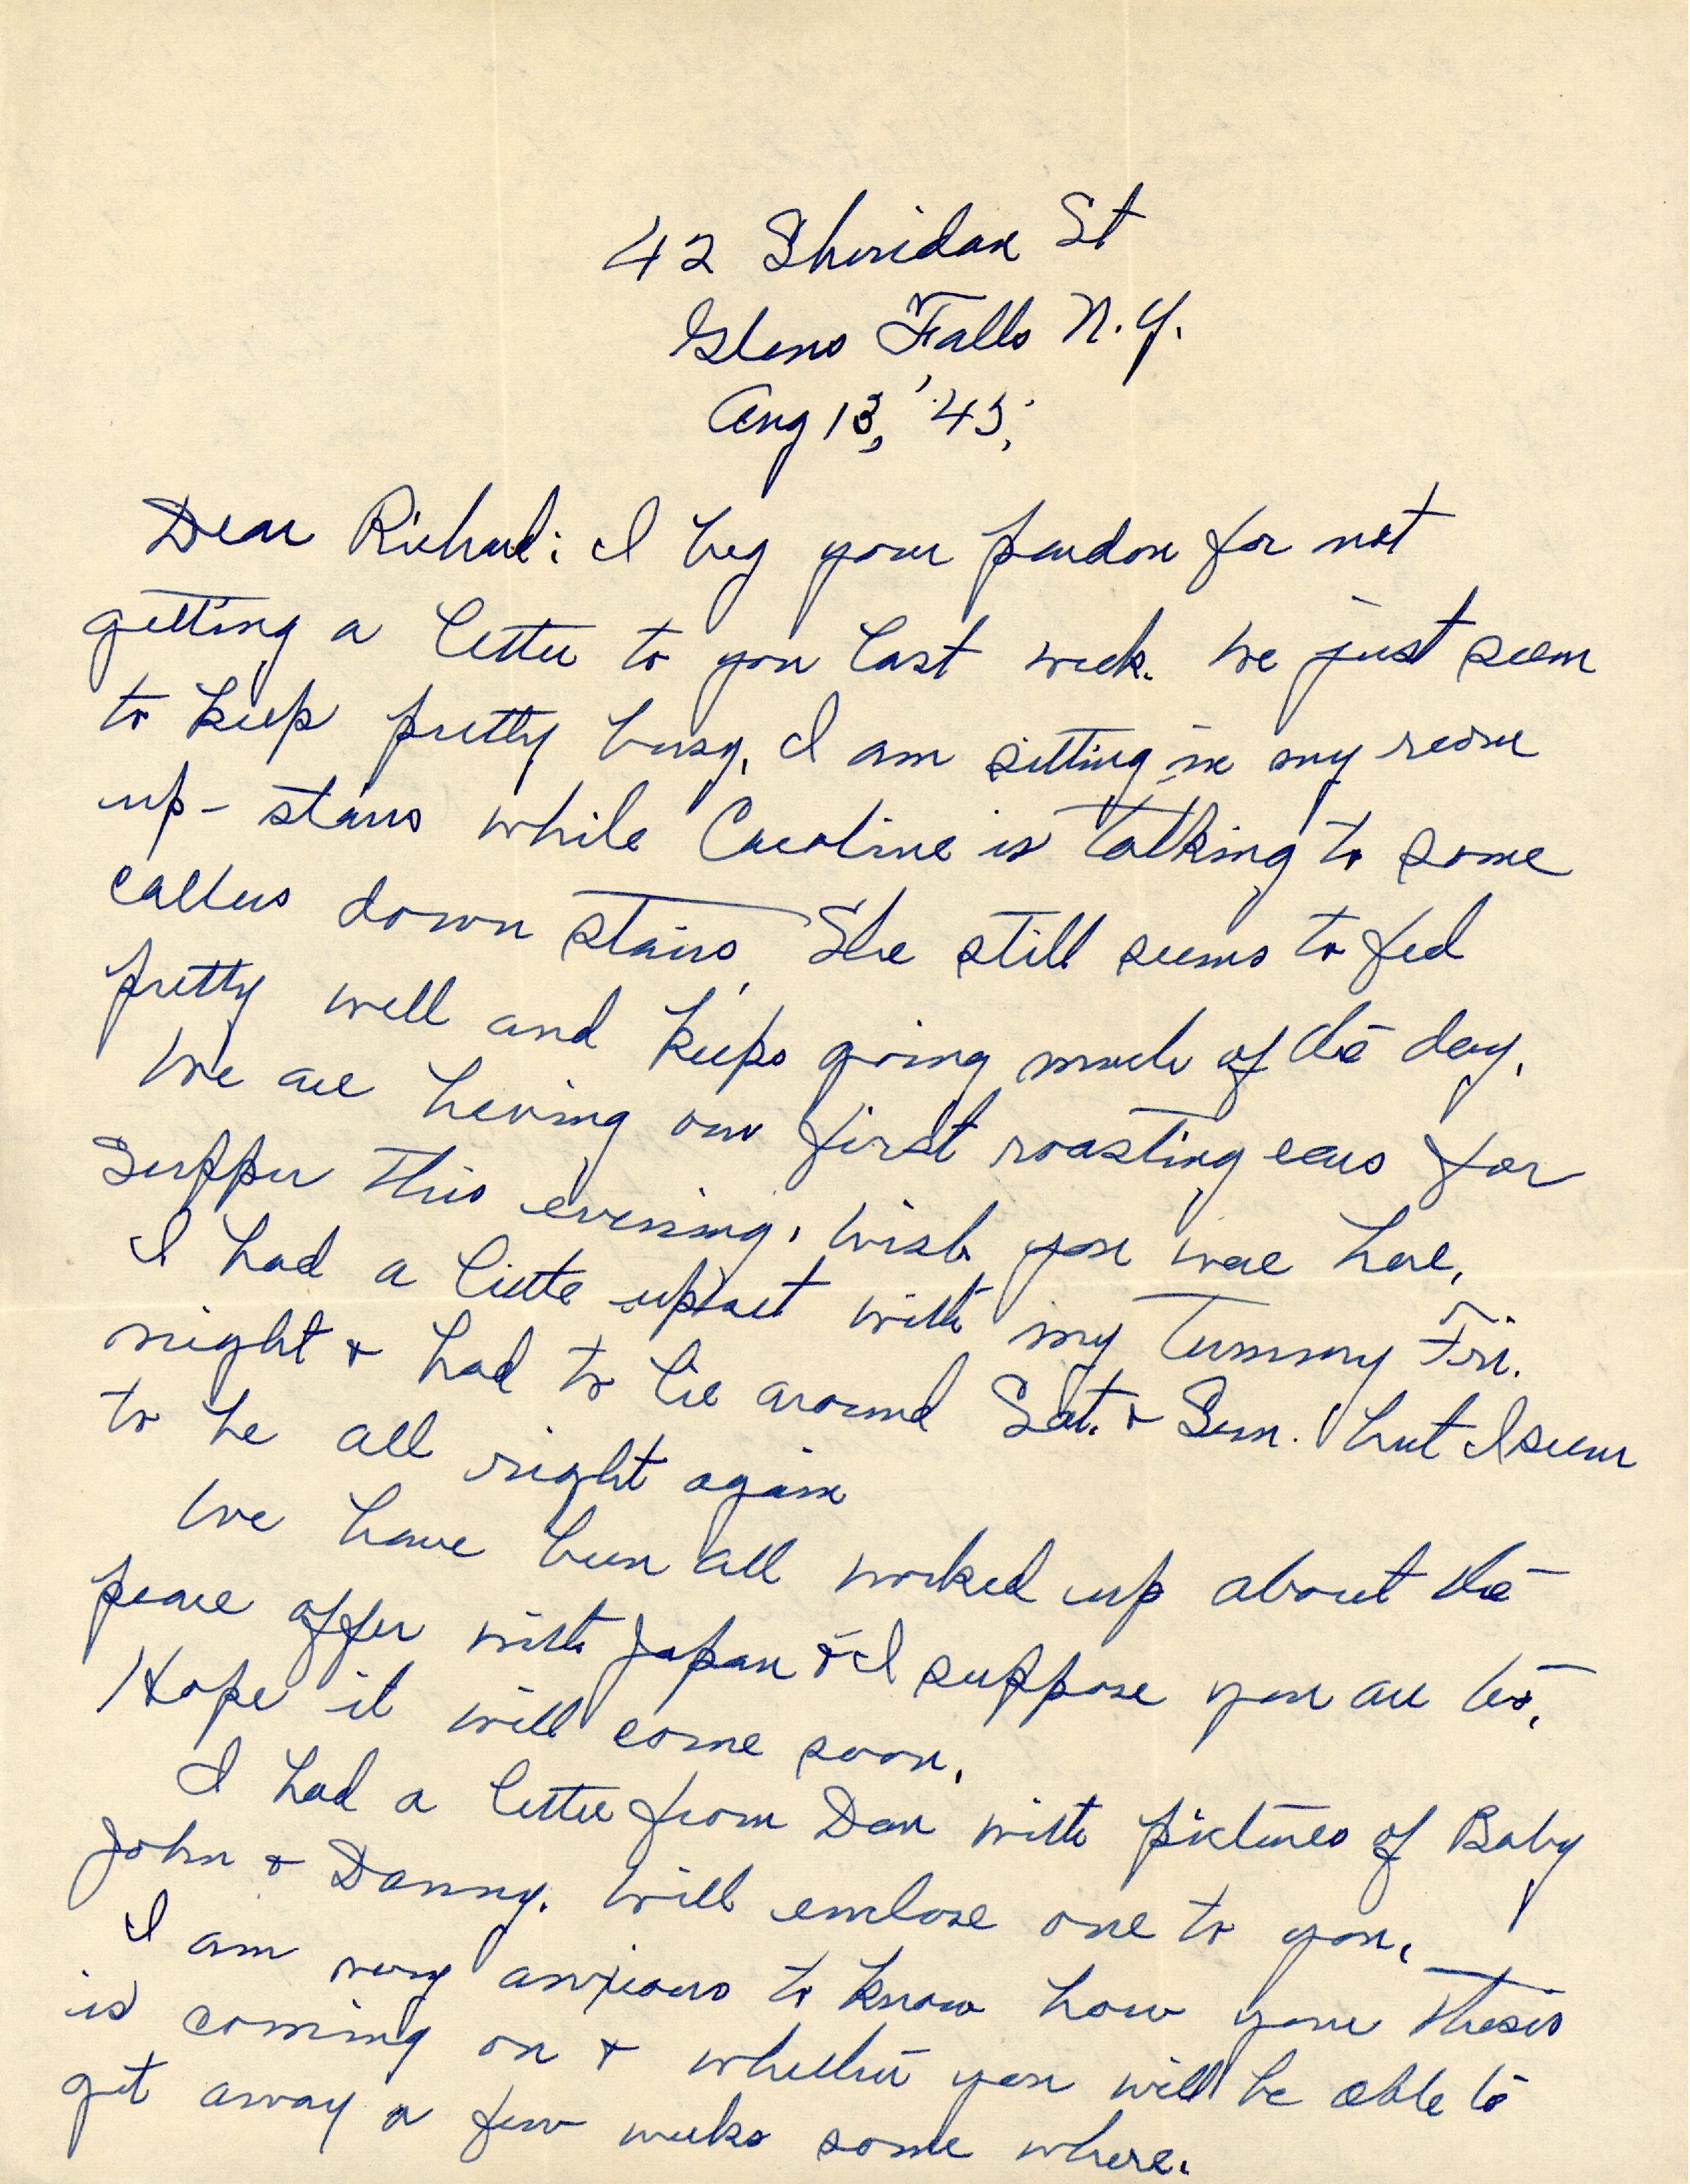 42 Sheridan St
Glens Falls N.Y.
Aug 13, '45.
Dear Richard: I beg your pardon for not
getting a letter to you last week. We just seem
to keep pretty busy. I am sitting in my room
up-stairs while Caroline is talking to some
callers down stairs. She still seems to feel
pretty well and keeps going much of the day.
We are having our first roasting ears for
supper this evening. Wish you were here.
I had a little upset with my Tummy Fri.
night & had to lie around Sat. & Sun. but I seem
to be all right again
We have been all worked up about the
peace offer with Japan & I suppose you are too.
Hope it will come soon.
I had a letter from Dan with pictures of Baby
John & Danny. Will enclose one to you.
I am very anxious to know how your Thesis
is coming on & whether you will be able to
get away a few weeks some where.